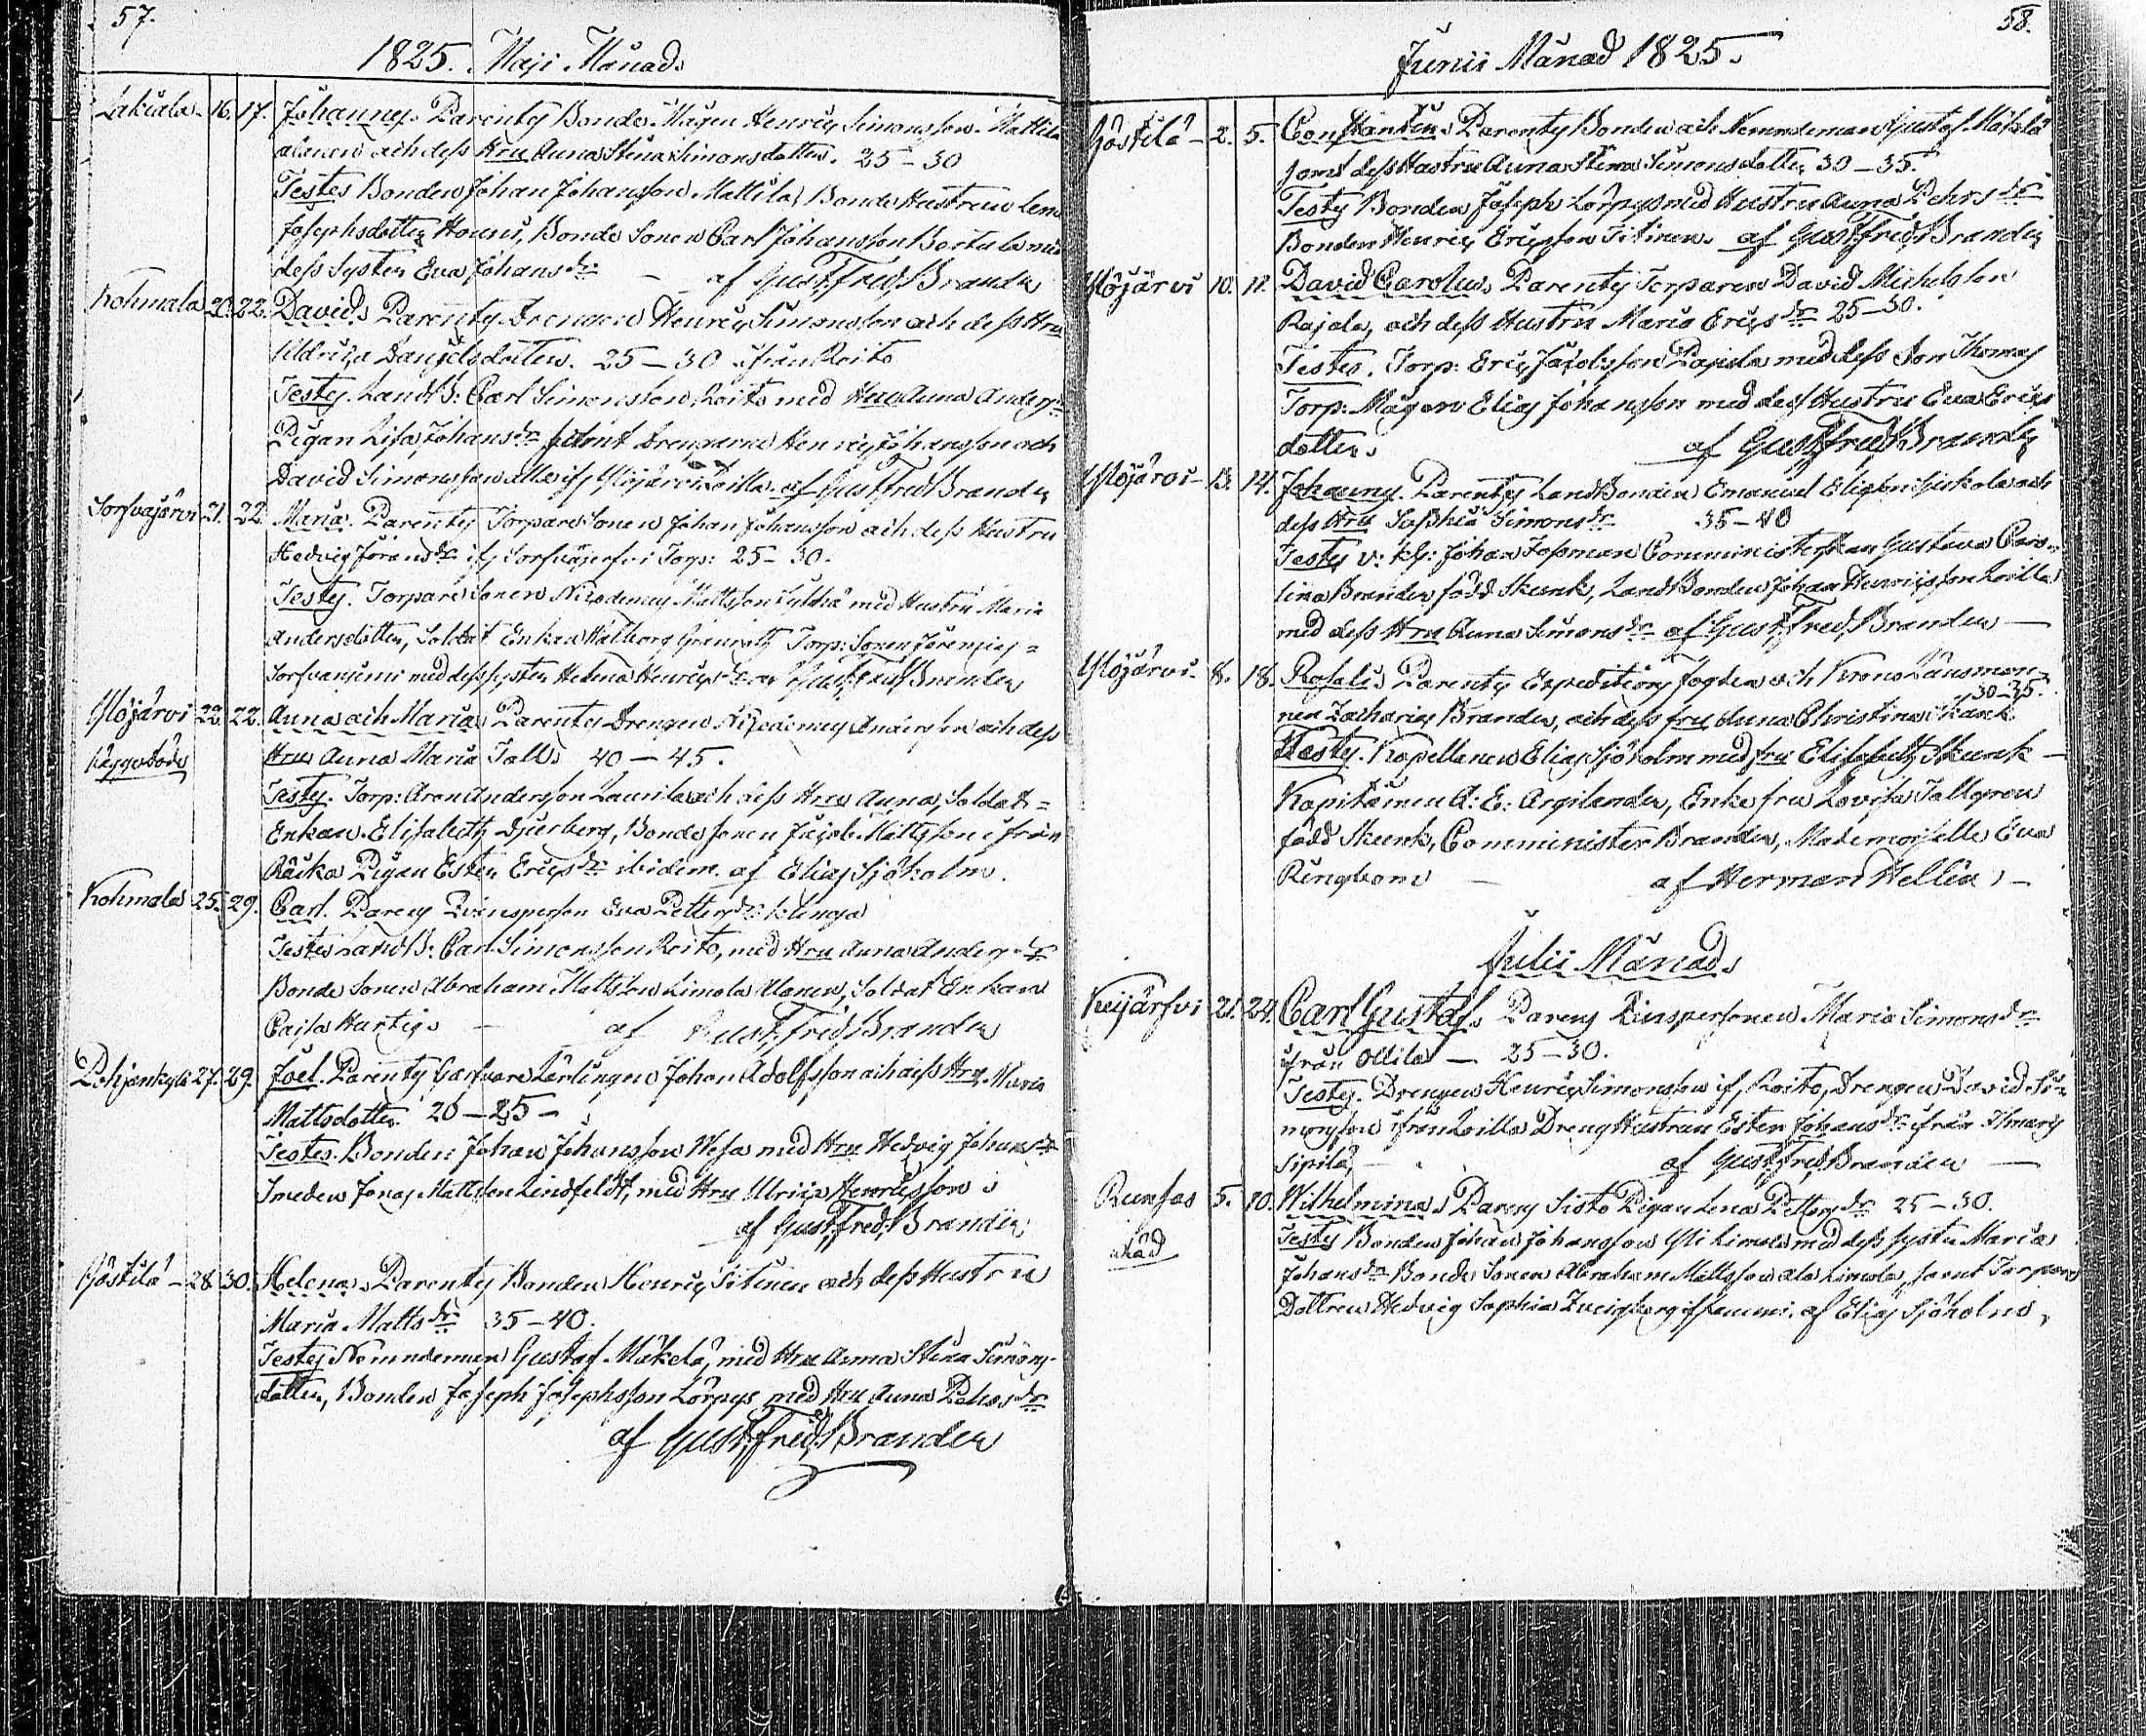 57.
1825. Maji Månad.
Lakiala 16. 17. Johannes. Parentes Bonde Mågen Henric Simonsson Mattila
alanen och dess Hru Anna Stina Simonsdotter. 25-30
Testes Bonden Johan Johansson Mattila, Bonde Hustrun Lena
Josephsdotter Houni, Bonde Sonen Carl Johansson Bertula med
dess Syster Eva Johans dr — af Gust. Fred. Brander
Kohmala 20. 22. David. Parentes Drengen Henric Simonsson och dess Hru
Ulrica Danielsdotter. 25-30 ifrån Roito
Testes. LandB: Carl Simonsson Roito med Hru Anna Anders dr
Pigan Lisa Johans dr samt Drengarne Henric Johansson och
David Simonsson alle if Ylöjärvi Loilla. af Gust. Fred. Brander
Sorfvajärvi 21. 22. Maria. Parentes Torpare Sonen Johan Johansson och dess Hustru
Hedvig Jörans dr if Sorfvajerfvi Torp: 25-30.
Testes. Torpare Sonen Nicodemus Mattsson med Hustru Maria
Andersdotter, Soldat Enkan Walborg Torp: Sonen
med dess syster Helena Henrics dr af Gust. Fred. Brander
Ylöjärvi 22. 22. Anna och Maria. Parentes Drengen Nicodemus Andersson och dess
Hru Anna Maria Tall. 40-45.
Testes. Torp: Aron Andersson Laurila och dess Hru Anna, Soldat=
Enkan Elisabeth Djerberg, Bonde Sonen Jacob Mattsson ifrån
Räikä Pigan Ester Erics dr ibidem. af Elias Sjöholm.
Kohmala 25. 29. Carl. Parens Qvinsperson Eva Petters dr
Testes LandB: Carl Simonsson Roito, med Hru Anna Anders dr
Bonde Sonen Abraham Mattsson Limola Alanen, Soldat Enkan
Caisa Hurtig. — af Gust. Fred. Brander
Pohjankylä 27. 29. Joel. Parentes Garfvare Lärlingen Johan Adolfsson och dess Hru Maria
Mattsdotter 20-25-
Testes. Bonden Johan Johansson Wesa med Hru Hedvig Johans dr
Smeden Jonas Mattsson Lindfeldt, med Hru Ulrica Henricsson
af Gust. Fred. Brander
Göstilä - 28. 30. Helena. Parentes Bonden Henric Titinen och dess Hustru
Maria Matts dr 35-40.
Testes Nemndeman Gustaf Mäkelä, med Hru Anna Stina Simons-
dotter, Bonden Joseph Josephsson Lörpys med Hru Anna Pehrs dr
af Gust. Fred. Brander
58.
Junii Månad 1825.
Göstilä - 2. 5. Constantin. Parentes Bonden och Nemndeman Gustaf Mäkelä
samt dess Hustru Anna Stina Simonsdotter 30-35.
Testes Bonden Joseph Lörpys med Hustru Anna Pehrs dr
Bonden Henric Ericsson Titinen. af Gust. Fred. Brander
Ylöjärvi 10. 11. David Carolus. Parentes Torparen David Michelsson
Rajala, och dess Hustru Maria Erics dr 25-30.
Testes. Torp: Eric Jacobsson Rajala med dess Son Thomas
Torp: Mågen Elias Johansson med dess Hustru Eva Erics
dotter. af Gust. Fred. Brander
Ylöjärvi - 13. 14. Johannes. Parentes LandBonden Emanuel Eliesson och
dess Hru Sophia Simons dr 35-40
Testes v: kl: Johan Commministerskan Gustava Caro-
lina Brander född Skunk, LandBonden Johan Henricsson Loilla
med dess Hru Anna Simons dr af Gust. Fred. Brander —
Ylöjärvi - 8. 18. Rosalie. Parentes Expeditions fogden och Krono Länsman-
nen Zacharias Brander, och dess fru Anna Christina Skunk. 30-35.
Testes. Kapellanen Elias Sjöholm med fru Elisabeth Skunk —
Kapitainen A: E: Argilander, Enke fru Lovisa Tallgren
född Skunk, Comminister Brander, Mademoiselle Eva
Ringbom — af Herman Hellén. -
Julii Månad.
Keijärfvi 21. 24. Carl Gustaf. Parens Qvinspersonen Maria Simons dr
ifrån Ollila — 25-30.
Testes. Drengen Henric Simonsson if Roito, Drengen David Si-
monsson ifrån Loilla Dreng Hustrun Ester Johans dr ifrån Ilmaris
Sipilä, — af Gust. Fred. Brander —
Runsas 5. 10. Wilhelmina. Parens Sisto Pigan Lena Petters dr 25-30.
Testes Bonden Johan Johansson Yli Limola med dess syster Maria
Johans dr Bonde Sonen Abraham Mattsson ala Limola, samt Torpare
Dottren Hedvig Sophia Zweigberg af Elias Sjöholm.